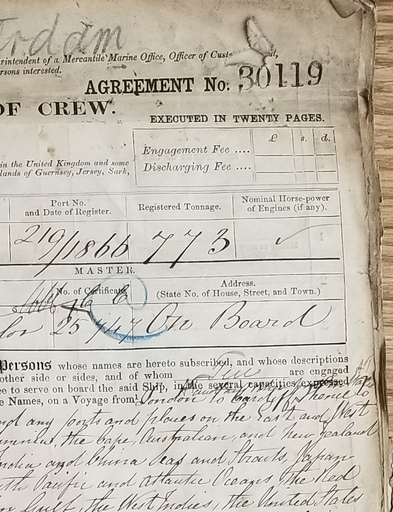 rintendent of a Mercantile Marine Office, Officer of
ersons interested.
AGREEMENT No. 30119
OF CREW.
EXECUTED IN TWENTY PAGES.
£ s. d.
Engagement Fee ....
Discharging Fee ....
in the United Kingdom and some
lands of Guernsey, Jersey, Sark,
Port No.
and Date of Register.
Registered Tonnage.
Nominal Horse-power
of Engines (if any).
219/1866 773
MASTER.
No. of Certificate.
Address.
(State No. of House, Street, and Town.)
On Board
PERSONS whose names are hereto subscribed, and whose descriptions
other side or sides, and of whom are engaged
to serve on board the said Ship, in the several capacities expressed
e Names, on a Voyage from London to Cardiff thence to
any ports and places on the East and West
the Cape, Australian, and New Zealand
India and China Seas and Straits, Japan
Pacific and Atlantic Oceans, the Red
Gulf, the West Indies, the United States